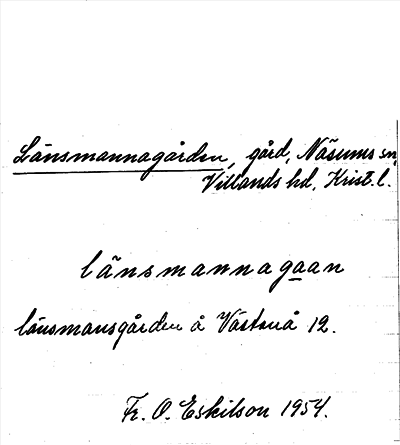 Länsmannagården, gård, Näsums sn,
Villands hd, Krist. l.
länsmannagaan
länsmansgården å Västanå 12.
Fr. O. Eskilson 1954.